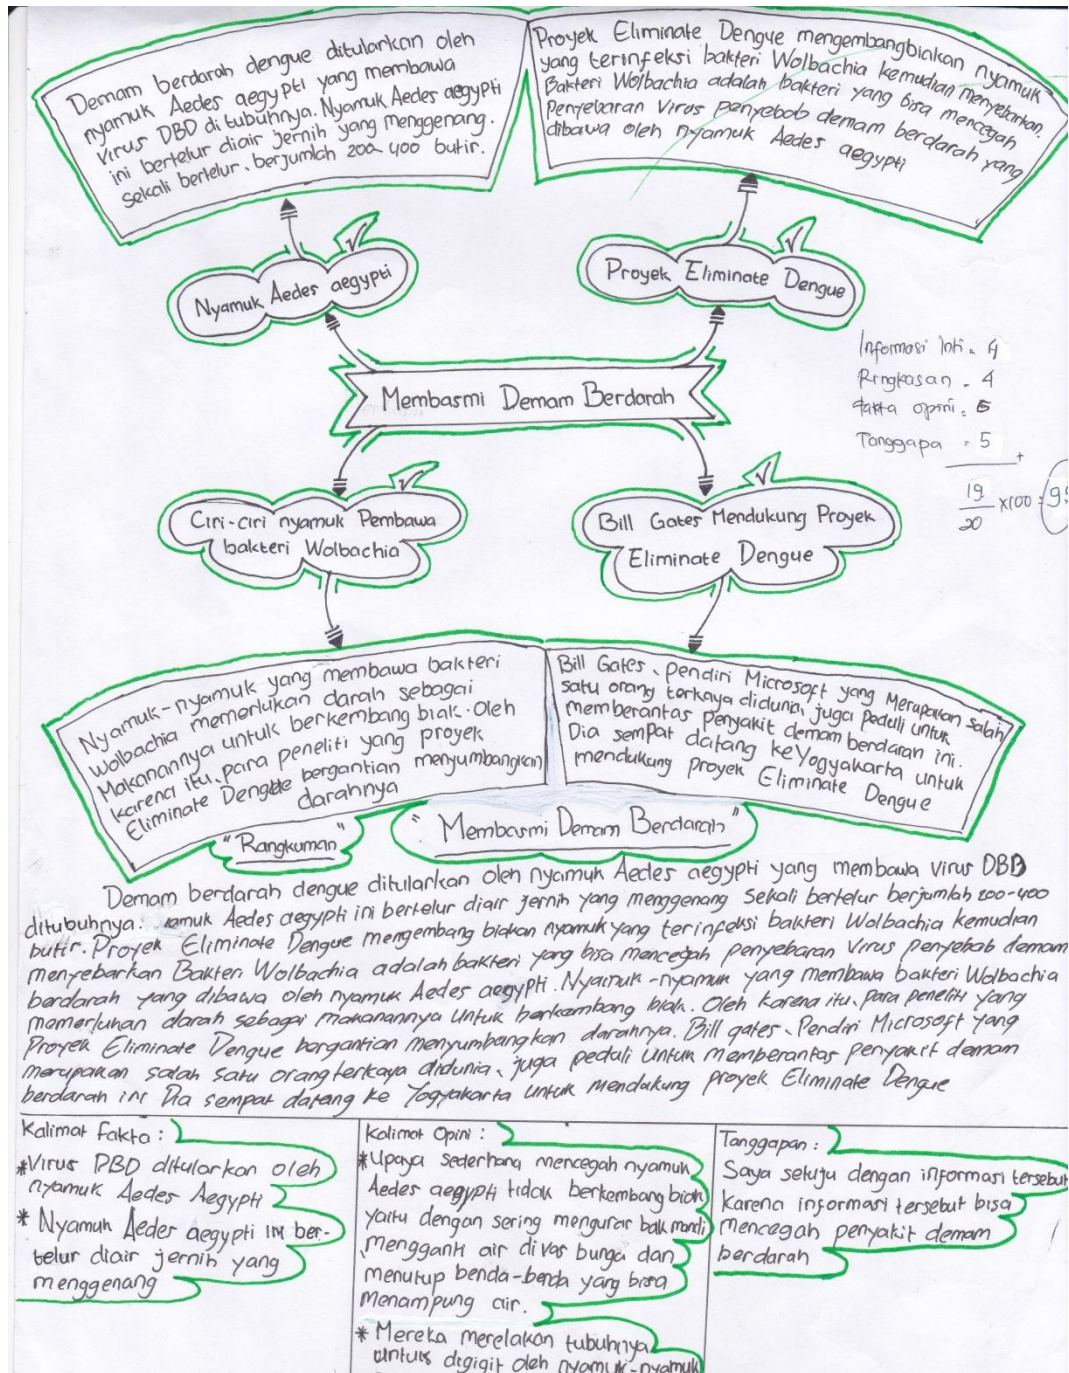 Demam berdarah dengue ditularkan oleh
nyamuk Aedes aegypti yang membawa
Virus DBD ditubuhnya. Nyamuk Aedes aegypti
ini bertelur diair jernih yang menggenang.
Sekali bertelur, berjumlah 200-400 butir.
Proyek Eliminate Dengue mengembangbiakan nyamuk
yang terinfeksi bakteri Wolbachia kemudian menyebarkan.
Bakteri Wolbachia adalah bakteri yang bisa mencegah
Penyebaran Virus penyebab demam berdarah yang
dibawa oleh nyamuk Aedes aegypti
Nyamuk Aedes aegypti
Proyek Eliminate Dengue
Membasmi Demam Berdarah
Informasi Inti = 4
Ringkasan = 4
fakta opini = 5
Tanggapa = 5
+
19
20
x100 = 95
Ciri-ciri nyamuk Pembawa
bakteri Wolbachia
Bill Gates Mendukung Proyek
Eliminate Dengue
Nyamuk-nyamuk yang membawa bakteri
Wolbachia memerlukan darah sebagai
Makanannya untuk berkembang biak. Oleh
karena itu, para peneliti yang proyek
Eliminate Dengue bergantian menyumbangkan
darahnya
Bill Gates, Pendiri Microsoft yang Merupakan salah
satu orang terkaya didunia, juga peduli untuk
memberantas penyakit demam berdarah ini.
Dia sempat datang keYogyakarta untuk
mendukung proyek Eliminate Dengue
"Rangkuman"
"Membasmi Demam Berdarah"
Demam berdarah dengue ditularkan oleh nyamuk Aedes aegypti yang membawa virus DBD
ditubuhnya. amuk Aedes aegypti ini bertelur diair jernih yang menggenang Sekali bertelur berjumlah 200-400
butir. Proyek Eliminate Dengue mengembang biakan nyamuk yang terinfeksi bakteri Wolbachia kemudian
menyebarkan Bakteri Wolbachia adalah bakteri yang bisa mencegah penyebaran Virus penyebab demam
berdarah yang dibawa oleh nyamuk Aedes aegypti. Nyamuk-nyamuk yang membawa bakteri Wolbachia
memerlukan darah sebagai makanannya untuk berkembang biak. Oleh karena itu, para peneliti yang
Proyek Eliminate Dengue bergantian menyumbangkan darahnya. Bill gates, Pendiri Microsoft yang
merupakan salah satu orang terkaya didunia, juga peduli untuk memberantas penyakit demam
berdarah ini Dia sempat datang ke Yogyakarta untuk mendukung proyek Eliminate Dengue
Kalimat Fakta :
*Virus DBD ditularkan oleh
nyamuk Aedes Aegypti
* Nyamuk Aedes aegypti ini ber-
telur diair jernih yang
menggenang
Kalimat Opini :
*Upaya sederhana mencegah nyamuk
Aedes aegypti tidak berkembang biak
yaitu dengan sering menguras bak mandi
, mengganti air di vas bunga dan
menutup benda-benda yang bisa
menampung air.
* Mereka merelakan tubuhnya
untuk digigit oleh nyamuk-nyamuk
Tanggapan :
Saya setuju dengan informasi tersebut
Karena informasi tersebut bisa
mencegah penyakit demam
berdarah